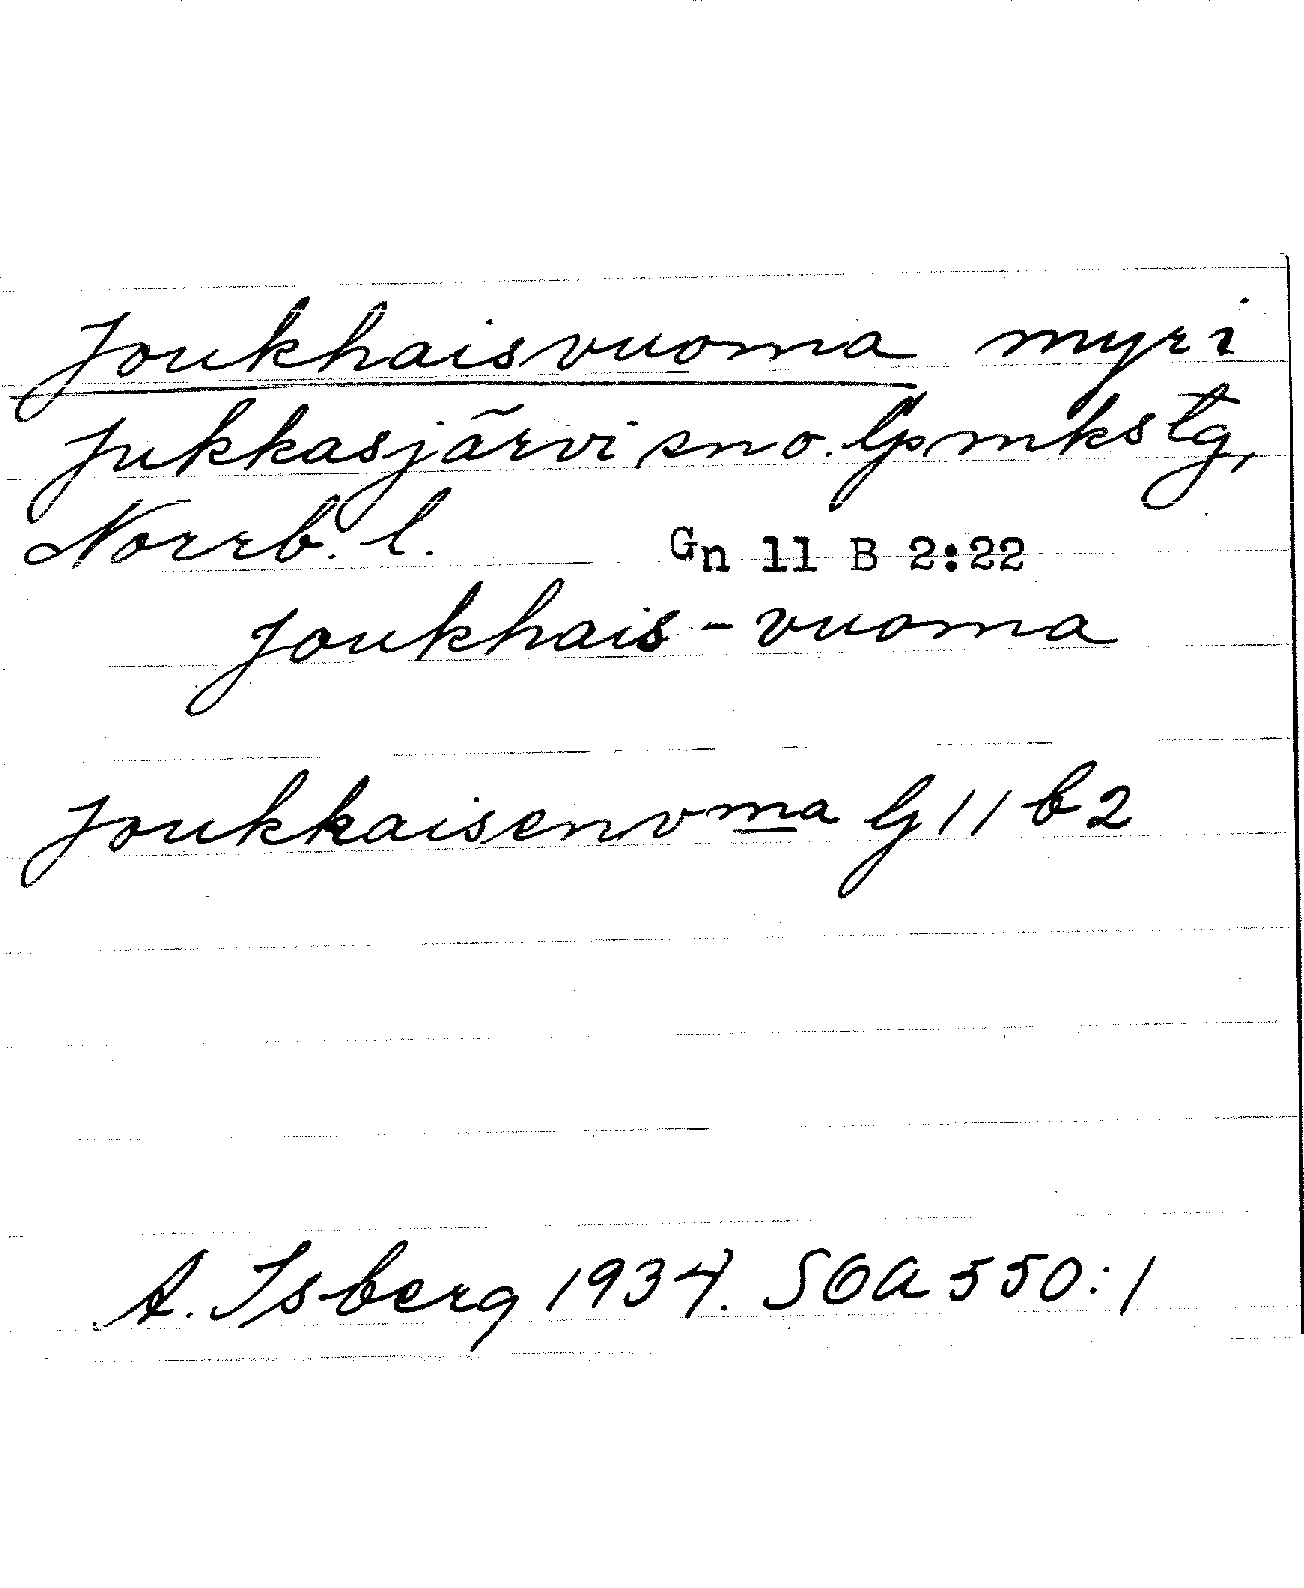 Joukhaisvuoma myr i
Jukkasjärvi sno. Lpmkstg,
Norrb. l. Gn 11 B 2:22
Joukhais-vuoma
Joukkaisenvma G 11 b 2
A. Isberg 1934. SOA 550:1